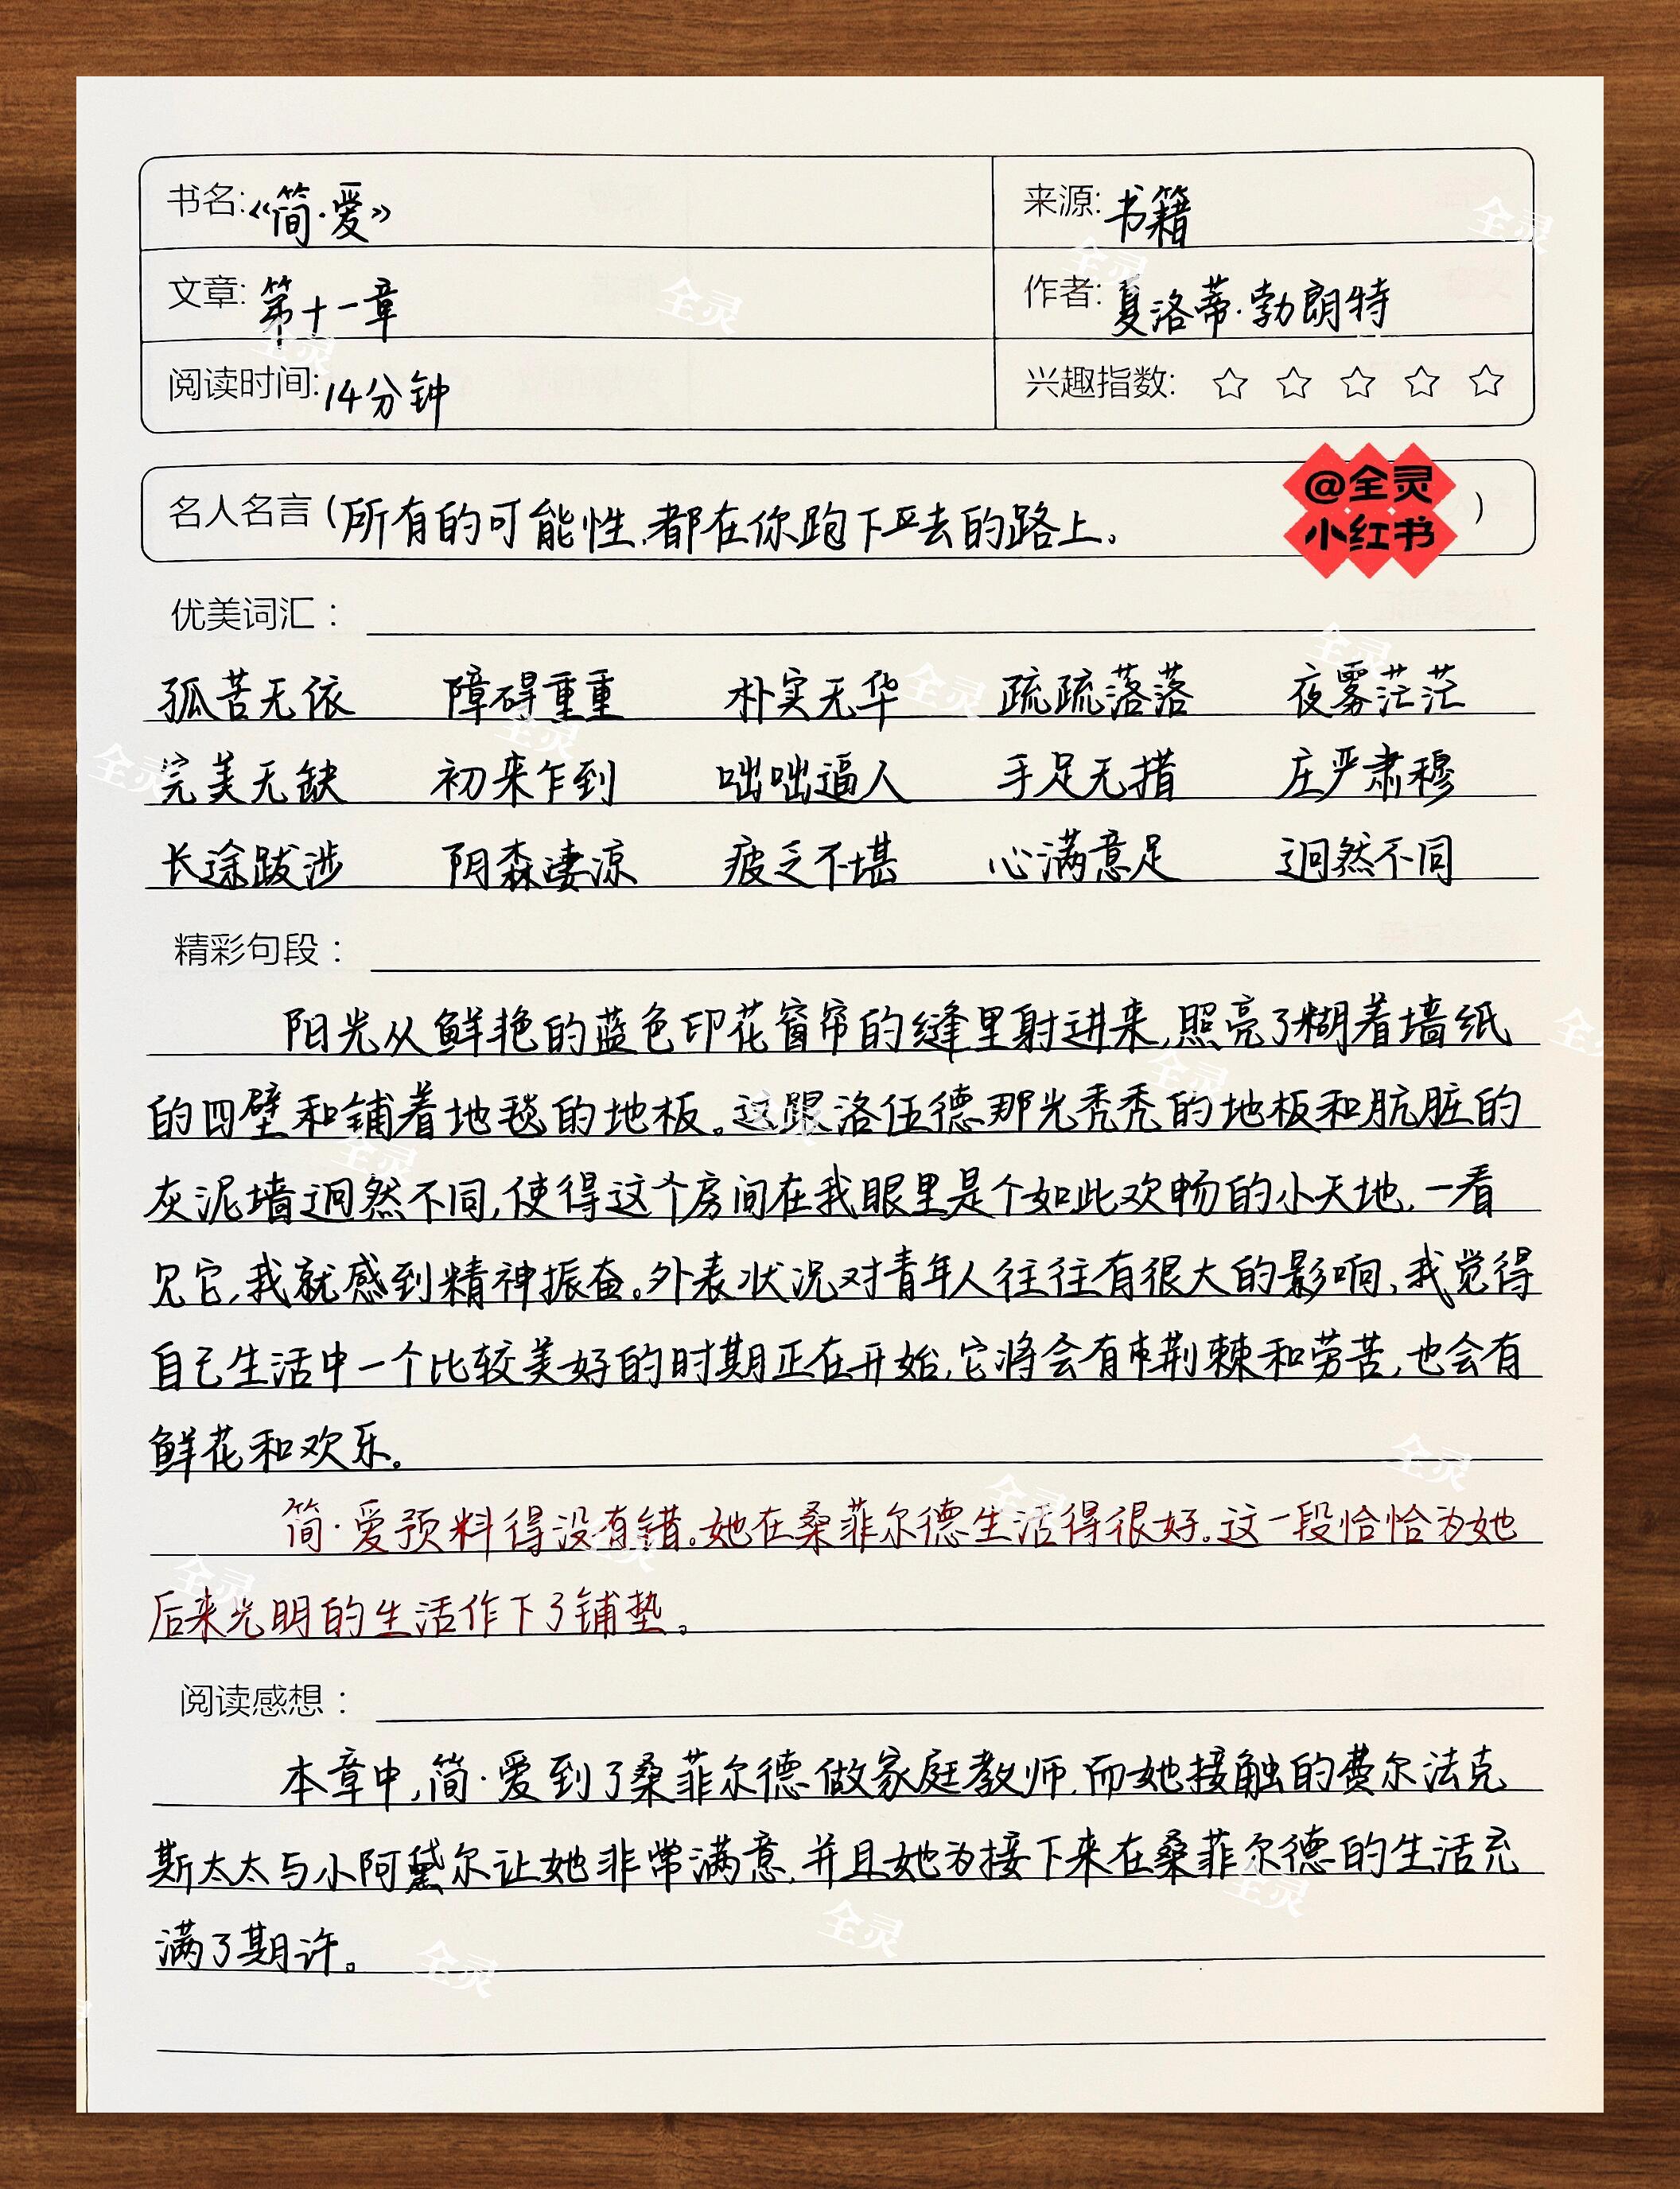 书名:《简·爱》 来源:书籍
文章:第十一章 作者:夏洛蒂·勃朗特
阅读时间:14分钟 兴趣指数:☆ ☆ ☆ ☆ ☆
名人名言(所有的可能性,都在你跑下去的路上。)
@全灵
小红书
优美词汇:
孤苦无依 障碍重重 朴实无华 疏疏落落 夜雾茫茫
完美无缺 初来乍到 咄咄逼人 手足无措 庄严肃穆
长途跋涉 阴森凄凉 疲乏不堪 心满意足 迥然不同
精彩句段:
阳光从鲜艳的蓝色印花窗帘的缝里射进来,照亮了糊着墙纸
的四壁和铺着地毯的地板。这跟洛伍德那光秃秃的地板和肮脏的
灰泥墙迥然不同,使得这个房间在我眼里是个如此欢畅的小天地,一看
见它,我就感到精神振奋。外表状况对青年人往往有很大的影响,我觉得
自己生活中一个比较美好的时期正在开始,它将会有荆棘和劳苦,也会有
鲜花和欢乐。
简·爱预料得没有错。她在桑菲尔德生活得很好。这一段恰恰为她
后来光明的生活作下了铺垫。
阅读感想:
本章中,简·爱到了桑菲尔德做家庭教师,而她接触的费尔法克
斯太太与小阿黛尔让她非常满意,并且她为接下来在桑菲尔德的生活充
满了期许。
全灵